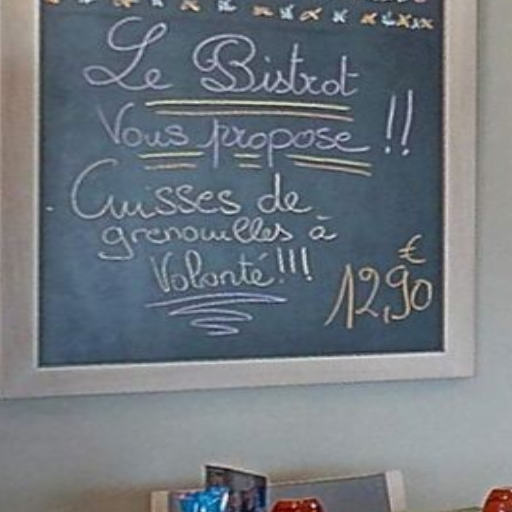 Le Bistrot
Vous propose !!
Cuisses de
grenouilles à
Volonté!!!
€
12,90